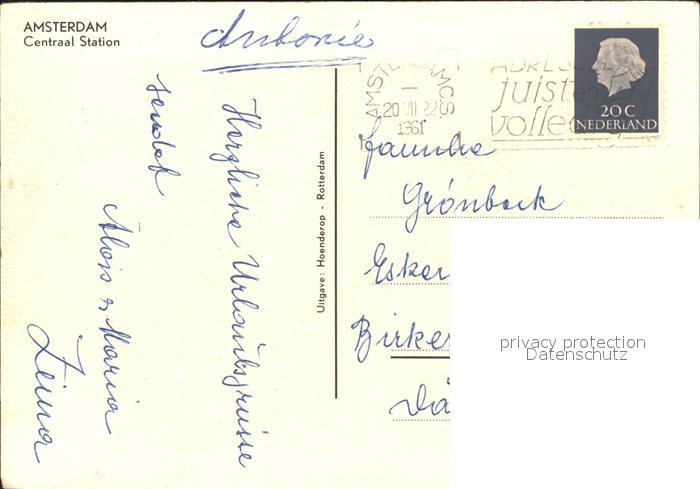 AMSTERDAM
Centraal Station
Antonie
Herzliche Urlaubsgrüsse
sendet
Alois & Maria
Uitgave: Hoenderop - Rotterdam
AMSTERDAM CS
20 VII 22
1961
juist
volle
20 C
NEDERLAND
Familie
Grönbeck
Esker
Birke
Dä
privacy protection
Datenschutz